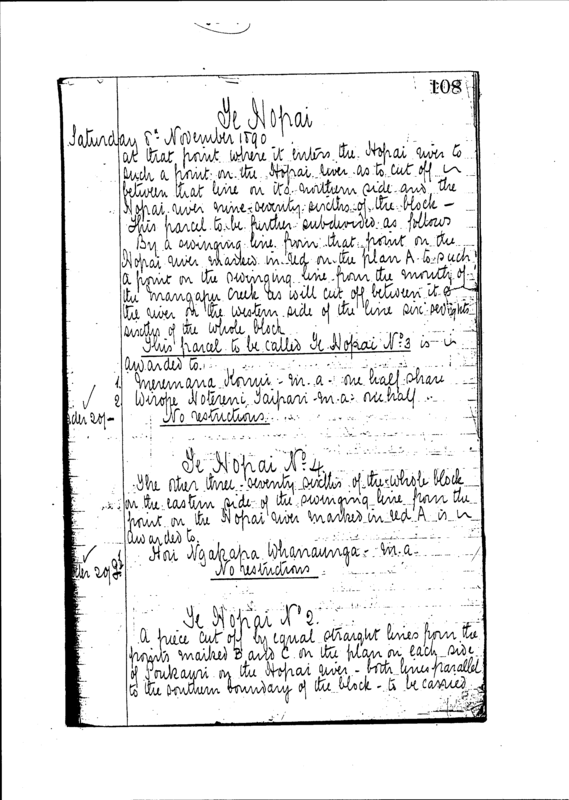 108
Te Hopai
Saturday 8th November 1890
at that point where it enters the Hopai river to
such a point on the Hopai river as to cut off
between that line on its northern side and the
Hopai river nine-seventy sixths of the block -
This parcel to be further subdivided as follows
By a swinging line from that point on the
Hopai river marked in red on the plan A to such
a point on the swinging line from the mouth of
the Mangapu Creek as will cut off between it &
the river on the western side of the line six
sixths of the whole block
This parcel to be called Te Hopai No. 3 is
awarded to.
1. Meremana Konui - m. a - one half share
2 Wirope Hotereni Taipari - m. a - one half
Order 20/-
No restrictions.
Te Hopai No. 4
The other three-seventy sixths of the whole block
on the eastern side of the swinging line from the
point on the Hopai river marked in red A is
awarded to
Hori Ngakapa Whanaunga - m. a
Order 20/-
No restrictions
Te Hopai No 2.
A piece cut off by equal straight lines from the
points marked B and C on the plan on each side
of on the Hopai river - both lines parallel
to the southern boundary of the block - to be carried